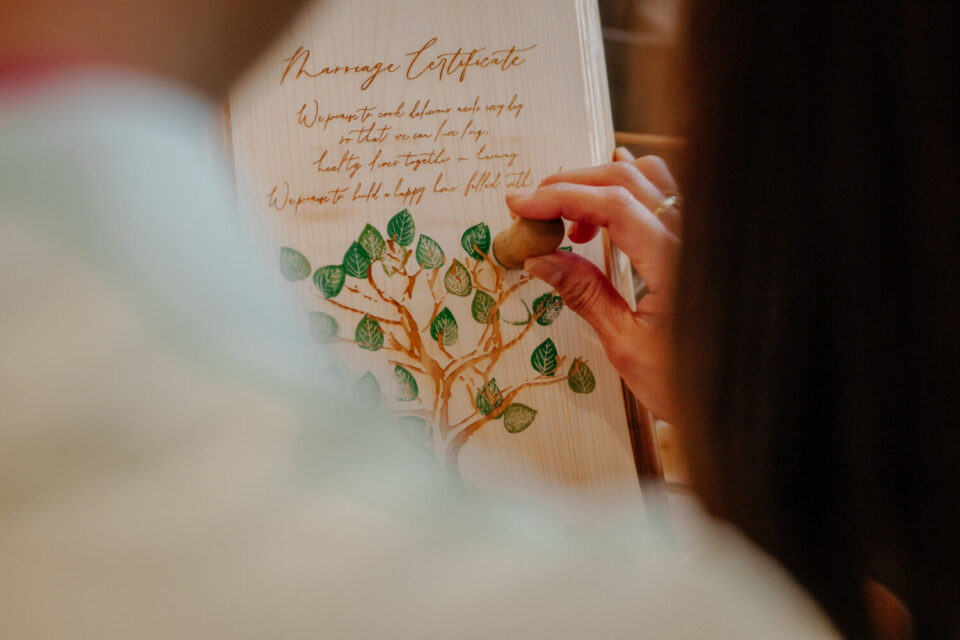 Marriage Certificate
We promise to cook delicious meals every day
so that we can live long,
healthy lives together in harmony
We promise to build a happy home filled with